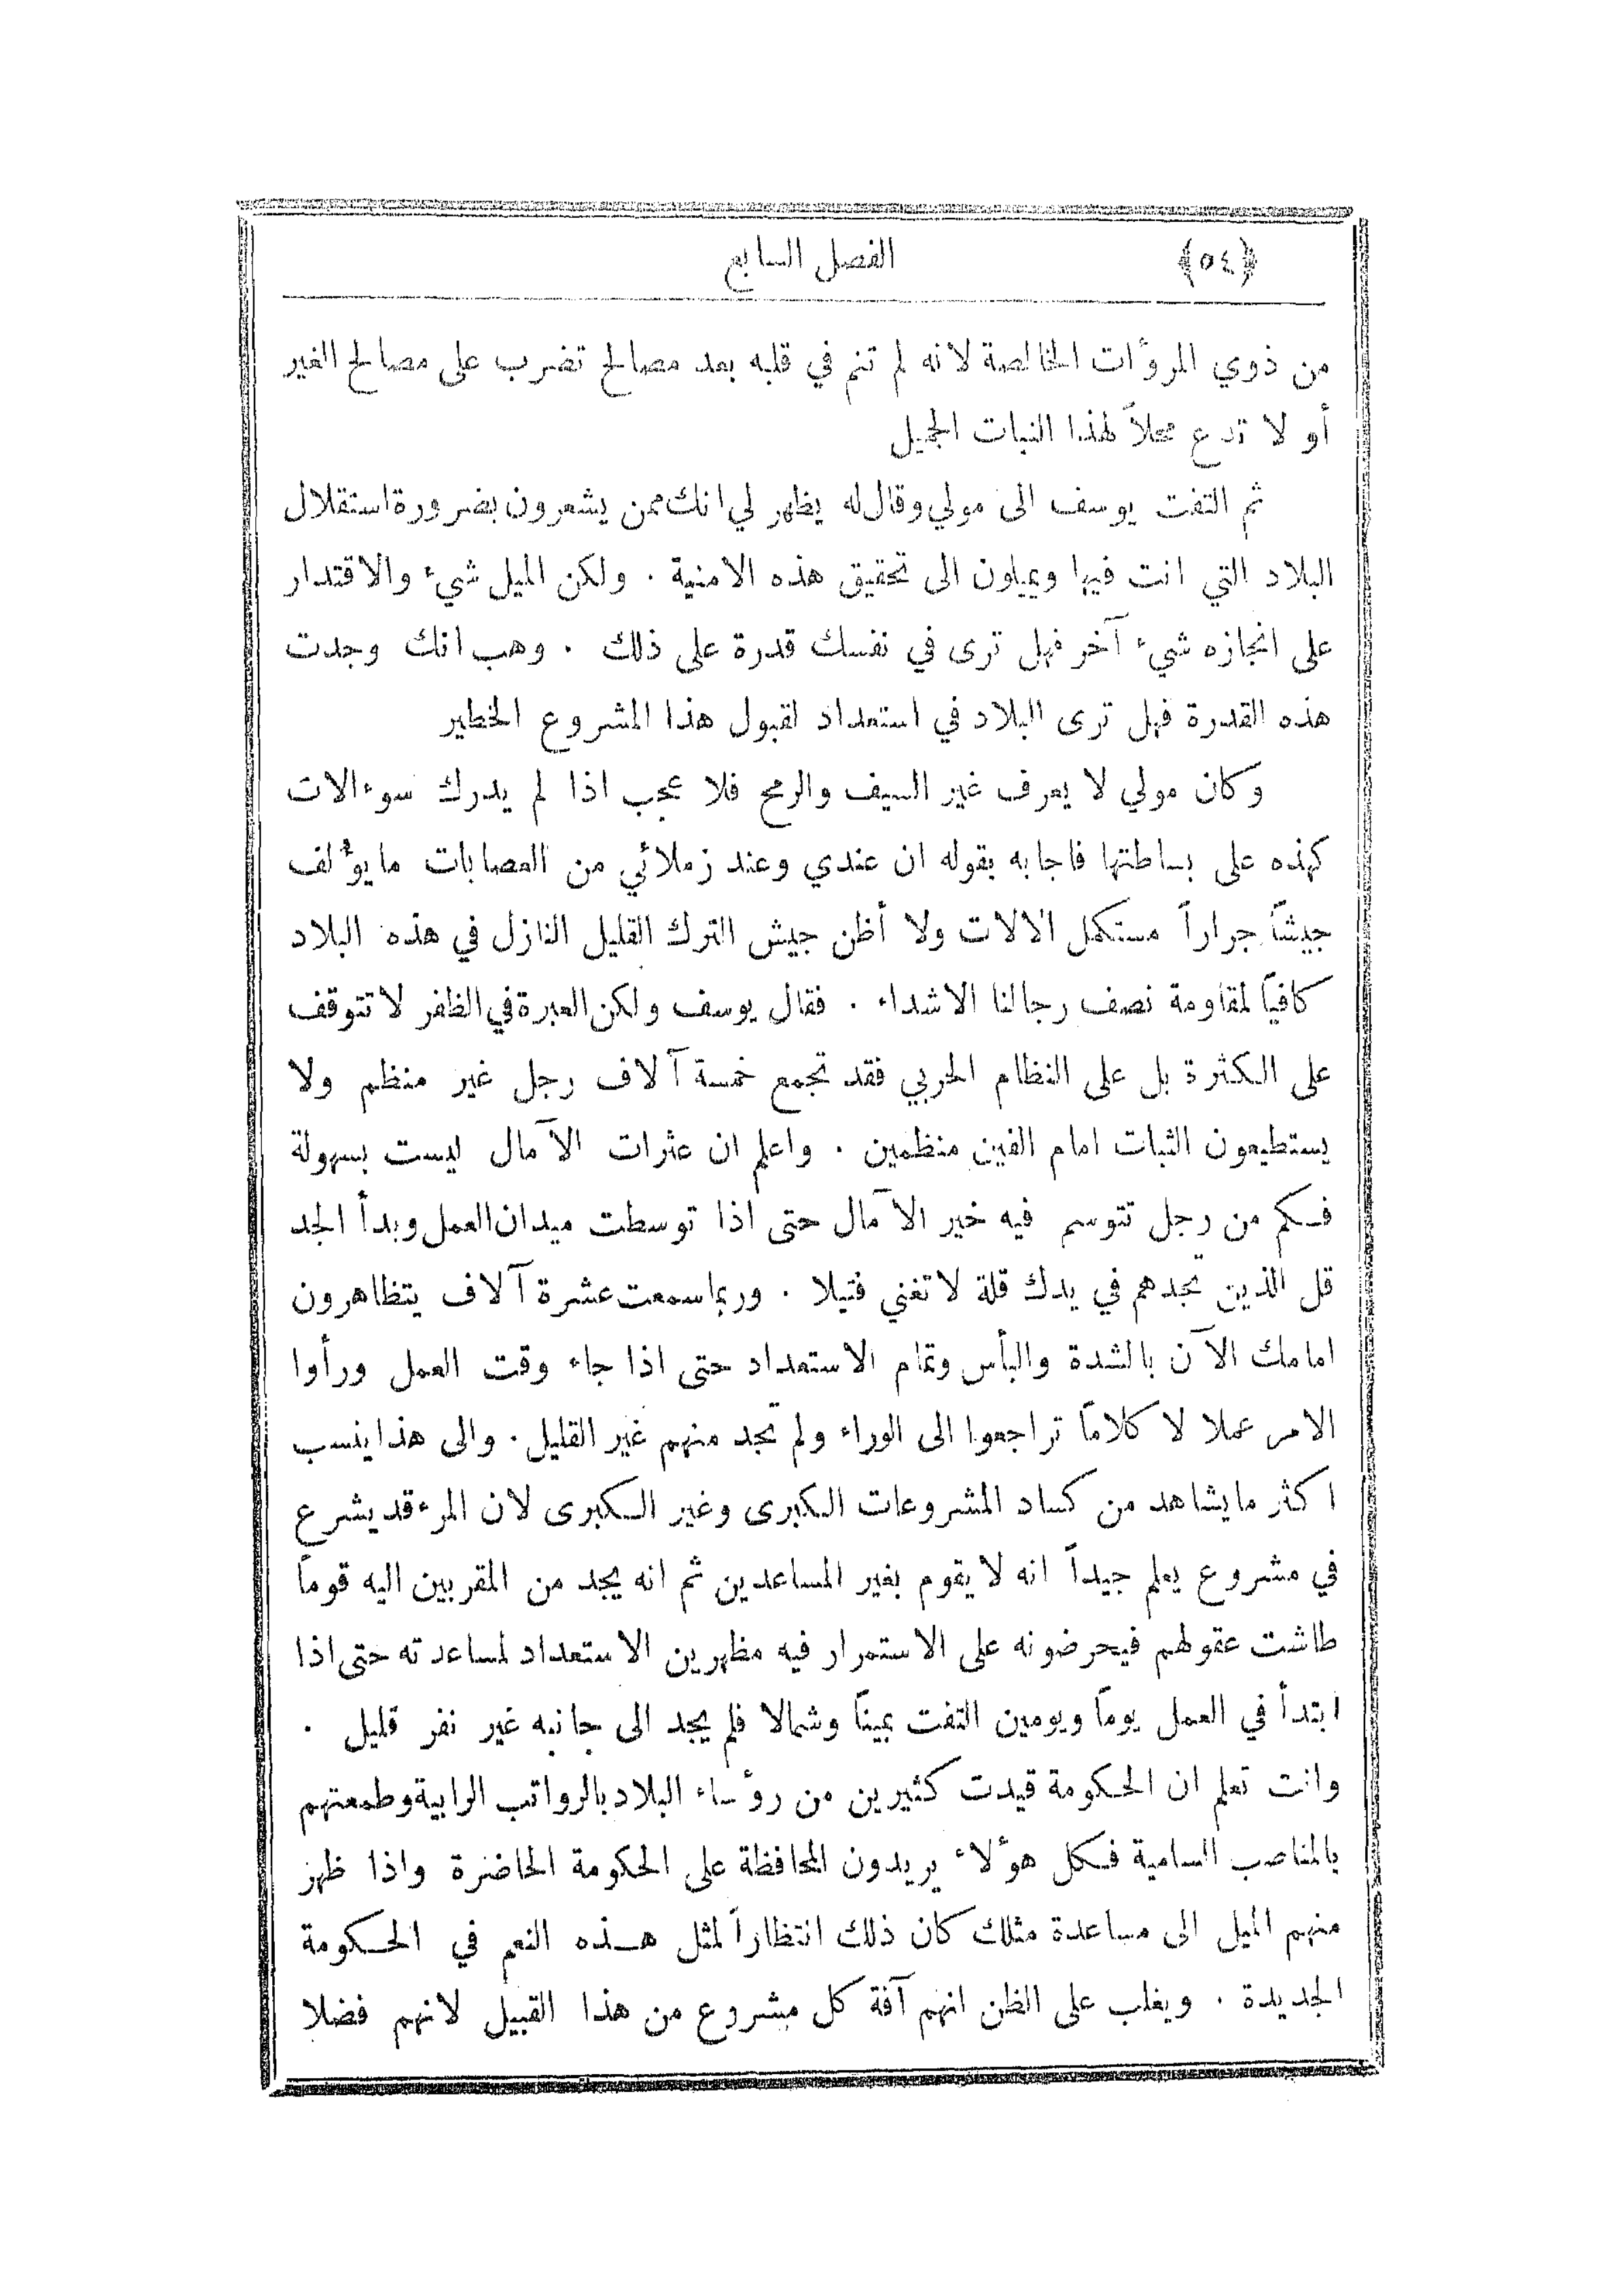 ﴿٥٤﴾ الفصل السابع
من ذوي المروٴات الخالصة لانه لم تنم في قلبه بعد مصالح تضرب على مصالح الغير
أو لا تدع محلاً لهذا النبات الجميل
ثم التفت يوسف الى مولي وقال له يظهر لي انك ممن يشعرون بضرورة استقلال
البلاد التي انت فيها ويميلون الى تحقيق هذه الامنية . ولكن الميل شيء والاقتدار
على انجازه شيء آخر فهل ترى في نفسك قدرة على ذلك . وهب انك وجدت
هذه القدرة فهل ترى البلاد في استعداد لقبول هذا المشروع الخطير
وكان مولي لا يعرف غير السيف والرمح فلا عجب اذا لم يدرك سوءالات
كهذه على بساطتها فاجابه بقوله ان عندي وعند زملائي من العصابات ما يوٴلف
جيشاً جراراً مستكمل الآلات ولا أظن جيش الترك القليل النازل في هذه البلاد
كافياً لمقاومة نصف رجالنا الاشداء . فقال يوسف ولكن العبرة في الظفر لا تتوقف
على الكثرة بل على النظام الحربي فقد تجمع خمسة آلاف رجل غير منظم ولا
يستطيعون الثبات امام الفين منظمين . واعلم ان عثرات الآمال ليست بسهولة
فكم من رجل تتوسم فيه خير الآمال حتى اذا توسطت ميدان العمل وبدأ الجد
قل الذين تجدهم في يدك قلة لا تغني فتيلا . وربما سمعت عشرة آلاف يتظاهرون
امامك الآن بالشدة والبأس وتمام الاستعداد حتى اذا جاء وقت العمل ورأوا
الامر عملا لا كلاماً تراجعوا الى الوراء ولم تجد منهم غير القليل . والى هذا ينسب
اكثر ما يشاهد من كساد المشروعات الكبرى وغير الكبرى لان المرء قد يشرع
في مشروع يعلم جيداً انه لا يقوم بغير المساعدين ثم انه يجد من المقربين اليه قوماً
طاشت عقولهم فيحرضونه على الاستمرار فيه مظهرين الاستعداد لمساعدته حتى اذا
ابتدأ في العمل يوماً ويومين التفت يميناً وشمالا فلم يجد الى جانبه غير نفر قليل .
وانت تعلم ان الحكومة قيدت كثيرين من روٴساء البلاد بالرواتب الرابية وطمعتهم
بالمناصب السامية فكل هوٴلاء يريدون المحافظة على الحكومة الحاضرة واذا ظهر
منهم الميل الى مساعدة مثلك كان ذلك انتظاراً لمثل هذه النعم في الحكومة
الجديدة . ويغلب على الظن انهم آفة كل مشروع من هذا القبيل لانهم فضلا